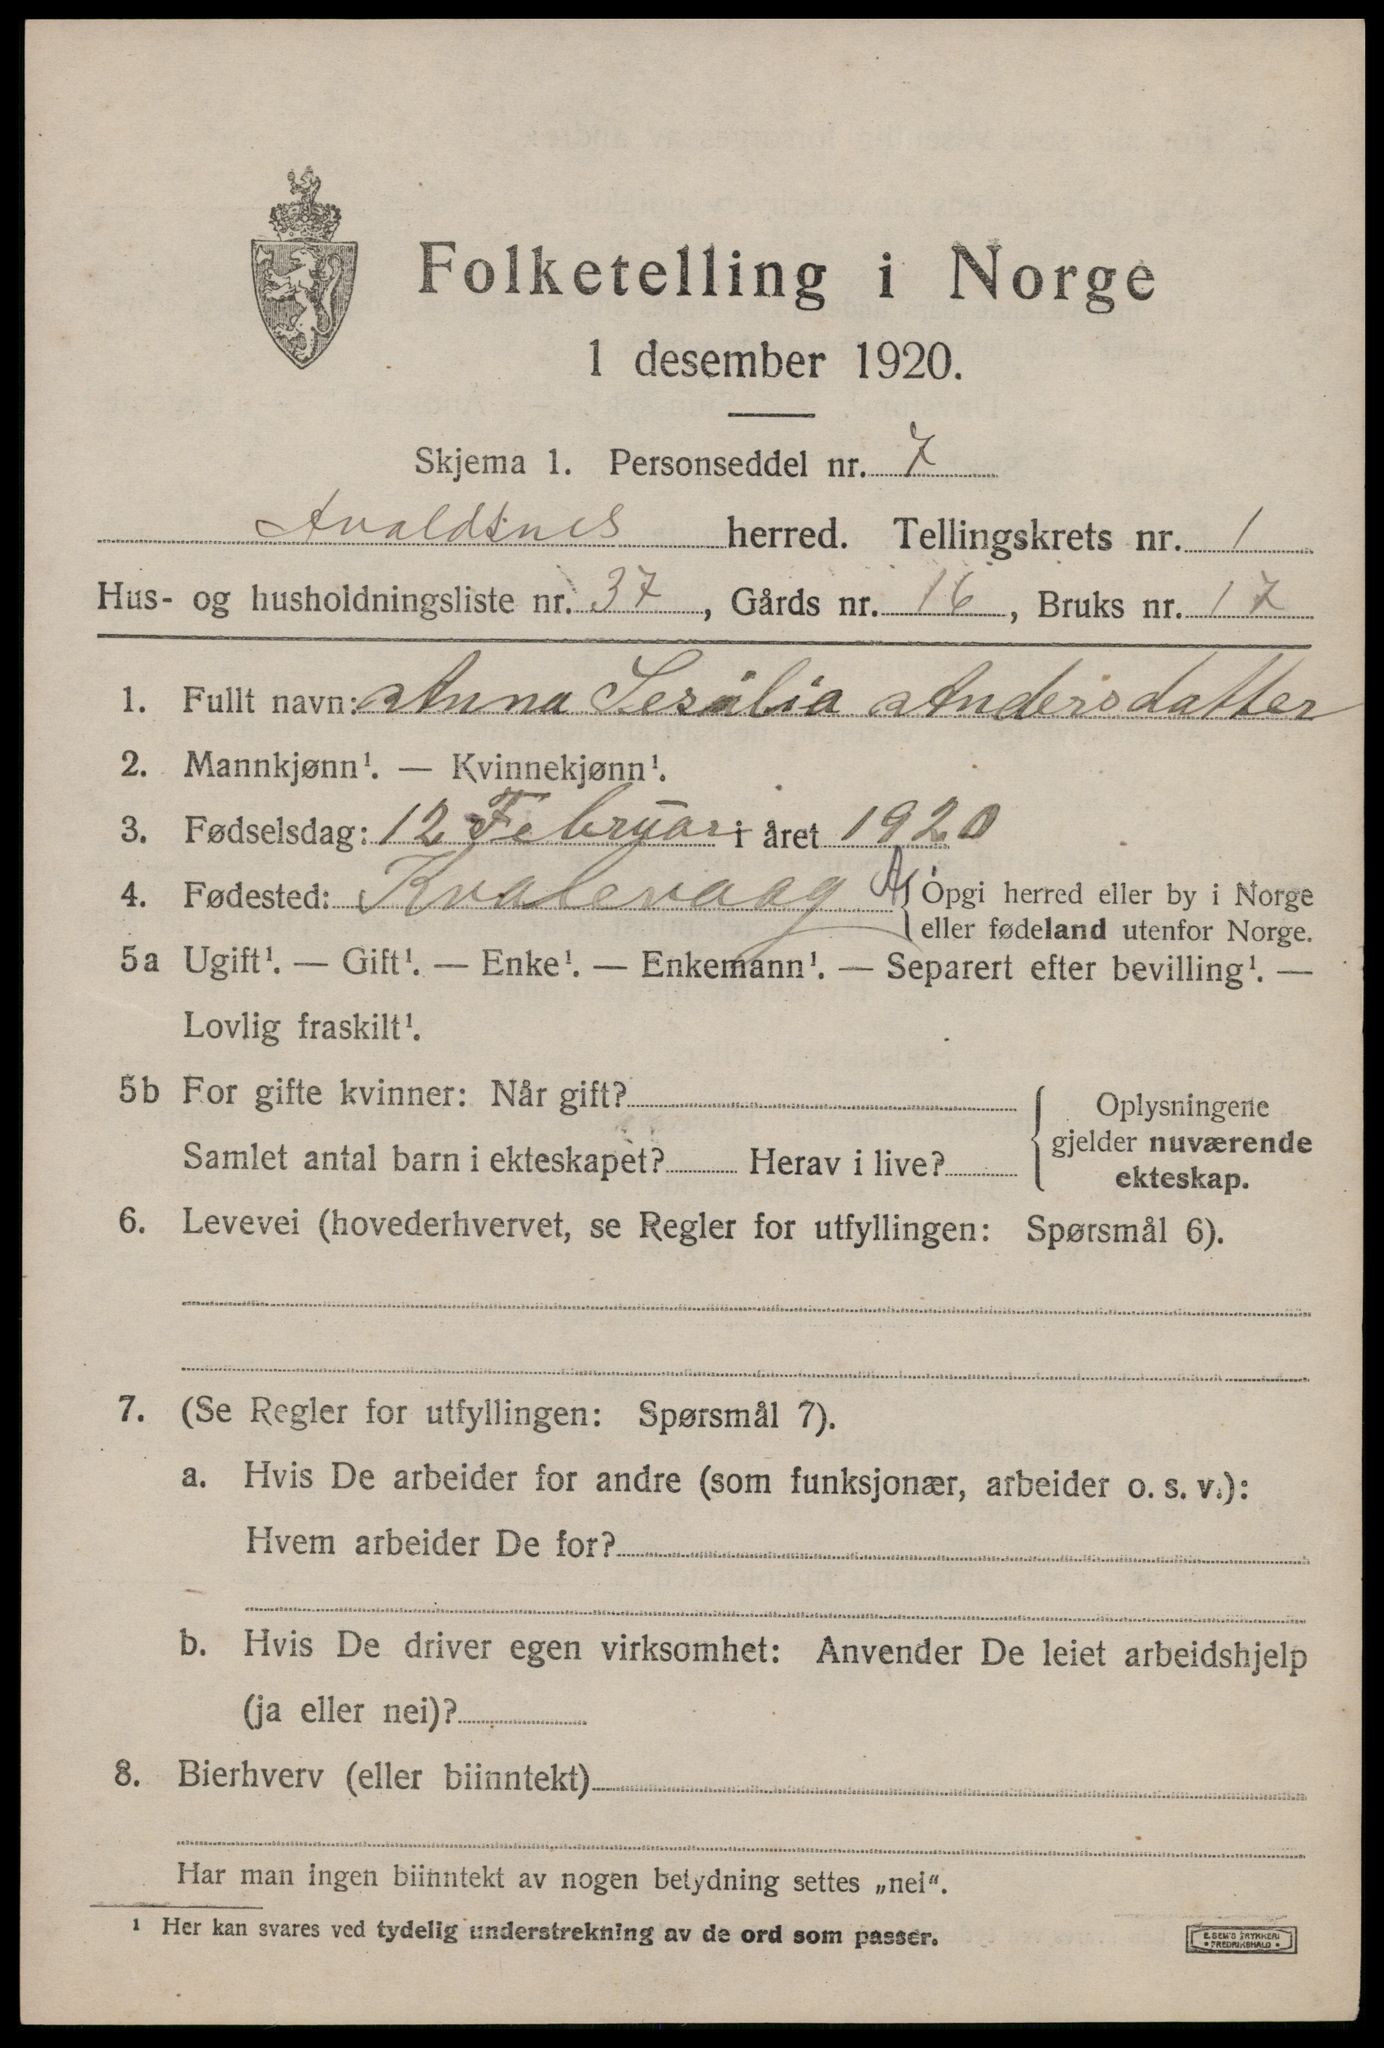 Folketelling i Norge
1 desember 1920.
Skjema 1. Personseddel nr. 7
Avaldsnes herred. Tellingskrets nr. 1
Hus- og husholdningsliste nr. 37, Gårds nr. 16, Bruks nr. 17
1. Fullt navn: Anna Sesilia Andersdatter
2. Mannkjønn¹. — Kvinnekjønn¹.
3. Fødselsdag: 12 Februar i året 1920
4. Fødested: Kvalevaag A { Opgi herred eller by i Norge
eller fødeland utenfor Norge.
5a Ugift¹. — Gift¹. — Enke¹. — Enkemann¹. — Separert efter bevilling¹. —
Lovlig fraskilt¹.
5b For gifte kvinner: Når gift?
Samlet antal barn i ekteskapet? Herav i live?
{ Oplysningene
gjelder nuværende
ekteskap.
6. Levevei (hovederhvervet, se Regler for utfyllingen: Spørsmål 6).
7. (Se Regler for utfyllingen: Spørsmål 7).
a. Hvis De arbeider for andre (som funksjonær, arbeider o. s. v.):
Hvem arbeider De for?
b. Hvis De driver egen virksomhet: Anvender De leiet arbeidshjelp
(ja eller nei)?
8. Bierhverv (eller biinntekt)
Har man ingen biinntekt av nogen betydning settes „nei“.
¹ Her kan svares ved tydelig understrekning av de ord som passer.
E. SEM'S TRYKKERI
• FREDRIKSHALD •